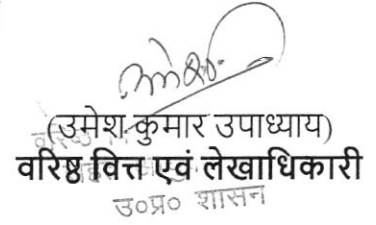 (उमेश कुमार उपाध्याय)
वरिष्ठ वित्त एवं लेखाधिकारी
उ०प्र० शासन